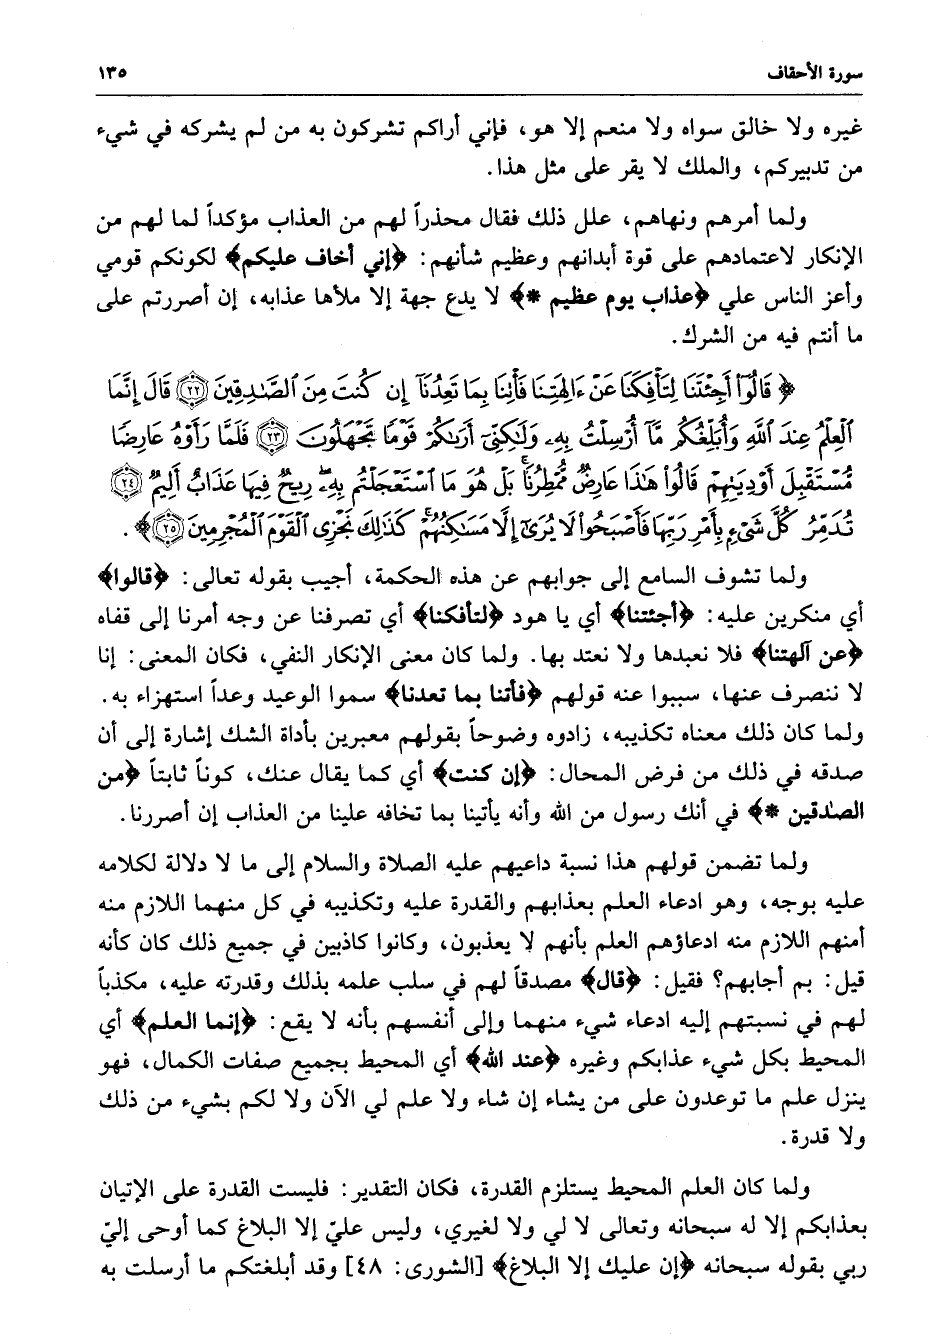 سورة الأحقاف ١٣٥
غيره ولا خالق سواه ولا منعم إلا هو، فإني أراكم تشركون به من لم يشركه في شيء
من تدبيركم، والملك لا يقر على مثل هذا.
ولما أمرهم ونهاهم، علل ذلك فقال محذراً لهم من العذاب مؤكداً لما لهم من
الإنكار لاعتمادهم على قوة أبدانهم وعظيم شأنهم: ﴿إني أخاف عليكم﴾ لكونكم قومي
وأعز الناس علي ﴿عذاب يوم عظيم *﴾ لا يدع جهة إلا ملأها عذابه، إن أصررتم على
ما أنتم فيه من الشرك.
﴿ قَالُوٓا۟ أَجِئْتَنَا لِتَأْفِكَنَا عَنْ ءَالِهَتِنَا فَأْتِنَا بِمَا تَعِدُنَآ إِن كُنتَ مِنَ ٱلصَّٰدِقِينَ ﴿٢٢﴾ قَالَ إِنَّمَا
ٱلْعِلْمُ عِندَ ٱللَّهِ وَأُبَلِّغُكُم مَّآ أُرْسِلْتُ بِهِۦ وَلَٰكِنِّىٓ أَرَىٰكُمْ قَوْمًا تَجْهَلُونَ ﴿٢٣﴾ فَلَمَّا رَأَوْهُ عَارِضًا
مُّسْتَقْبِلَ أَوْدِيَتِهِمْ قَالُوا۟ هَٰذَا عَارِضٌ مُّمْطِرُنَا ۚ بَلْ هُوَ مَا ٱسْتَعْجَلْتُم بِهِۦ ۖ رِيحٌ فِيهَا عَذَابٌ أَلِيمٌ ﴿٢٤﴾
تُدَمِّرُ كُلَّ شَىْءٍۭ بِأَمْرِ رَبِّهَا فَأَصْبَحُوا۟ لَا يُرَىٰٓ إِلَّا مَسَٰكِنُهُمْ ۚ كَذَٰلِكَ نَجْزِى ٱلْقَوْمَ ٱلْمُجْرِمِينَ ﴿٢٥﴾ ﴾.
ولما تشوف السامع إلى جوابهم عن هذه الحكمة، أجيب بقوله تعالى: ﴿قالوا﴾
أي منكرين عليه: ﴿أجئتنا﴾ أي يا هود ﴿لتأفكنا﴾ أي تصرفنا عن وجه أمرنا إلى قفاه
﴿عن آلهتنا﴾ فلا نعبدها ولا نعتد بها. ولما كان معنى الإنكار النفي، فكان المعنى: إنا
لا ننصرف عنها، سببوا عنه قولهم ﴿فأتنا بما تعدنا﴾ سموا الوعيد وعداً استهزاء به.
ولما كان ذلك معناه تكذيبه، زادوه وضوحاً بقولهم معبرين بأداة الشك إشارة إلى أن
صدقه في ذلك من فرض المحال: ﴿إن كنت﴾ أي كما يقال عنك، كوناً ثابتاً ﴿من
الصٰدقين *﴾ في أنك رسول من الله وأنه يأتينا بما تخافه علينا من العذاب إن أصررنا.
ولما تضمن قولهم هذا نسبة داعيهم عليه الصلاة والسلام إلى ما لا دلالة لكلامه
عليه بوجه، وهو ادعاء العلم بعذابهم والقدرة عليه وتكذيبه في كل منهما اللازم منه
أمنهم اللازم منه ادعاؤهم العلم بأنهم لا يعذبون، وكانوا كاذبين في جميع ذلك كان كأنه
قيل: بم أجابهم؟ فقيل: ﴿قال﴾ مصدقاً لهم في سلب علمه بذلك وقدرته عليه، مكذباً
لهم في نسبتهم إليه ادعاء شيء منهما وإلى أنفسهم بأنه لا يقع: ﴿إنما العلم﴾ أي
المحيط بكل شيء عذابكم وغيره ﴿عند الله﴾ أي المحيط بجميع صفات الكمال، فهو
ينزل علم ما توعدون على من يشاء إن شاء ولا علم لي الآن ولا لكم بشيء من ذلك
ولا قدرة.
ولما كان العلم المحيط يستلزم القدرة، فكان التقدير: فليست القدرة على الإتيان
بعذابكم إلا له سبحانه وتعالى لا لي ولا لغيري، وليس عليّ إلا البلاغ كما أوحى إليّ
ربي بقوله سبحانه ﴿إن عليك إلا البلاغ﴾ [الشورى: ٤٨] وقد أبلغتكم ما أرسلت به